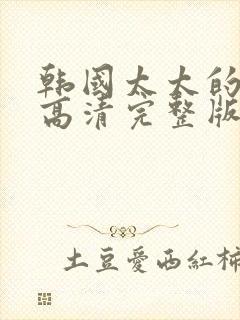 韩國太太的
高清完整版
土豆愛西紅柿